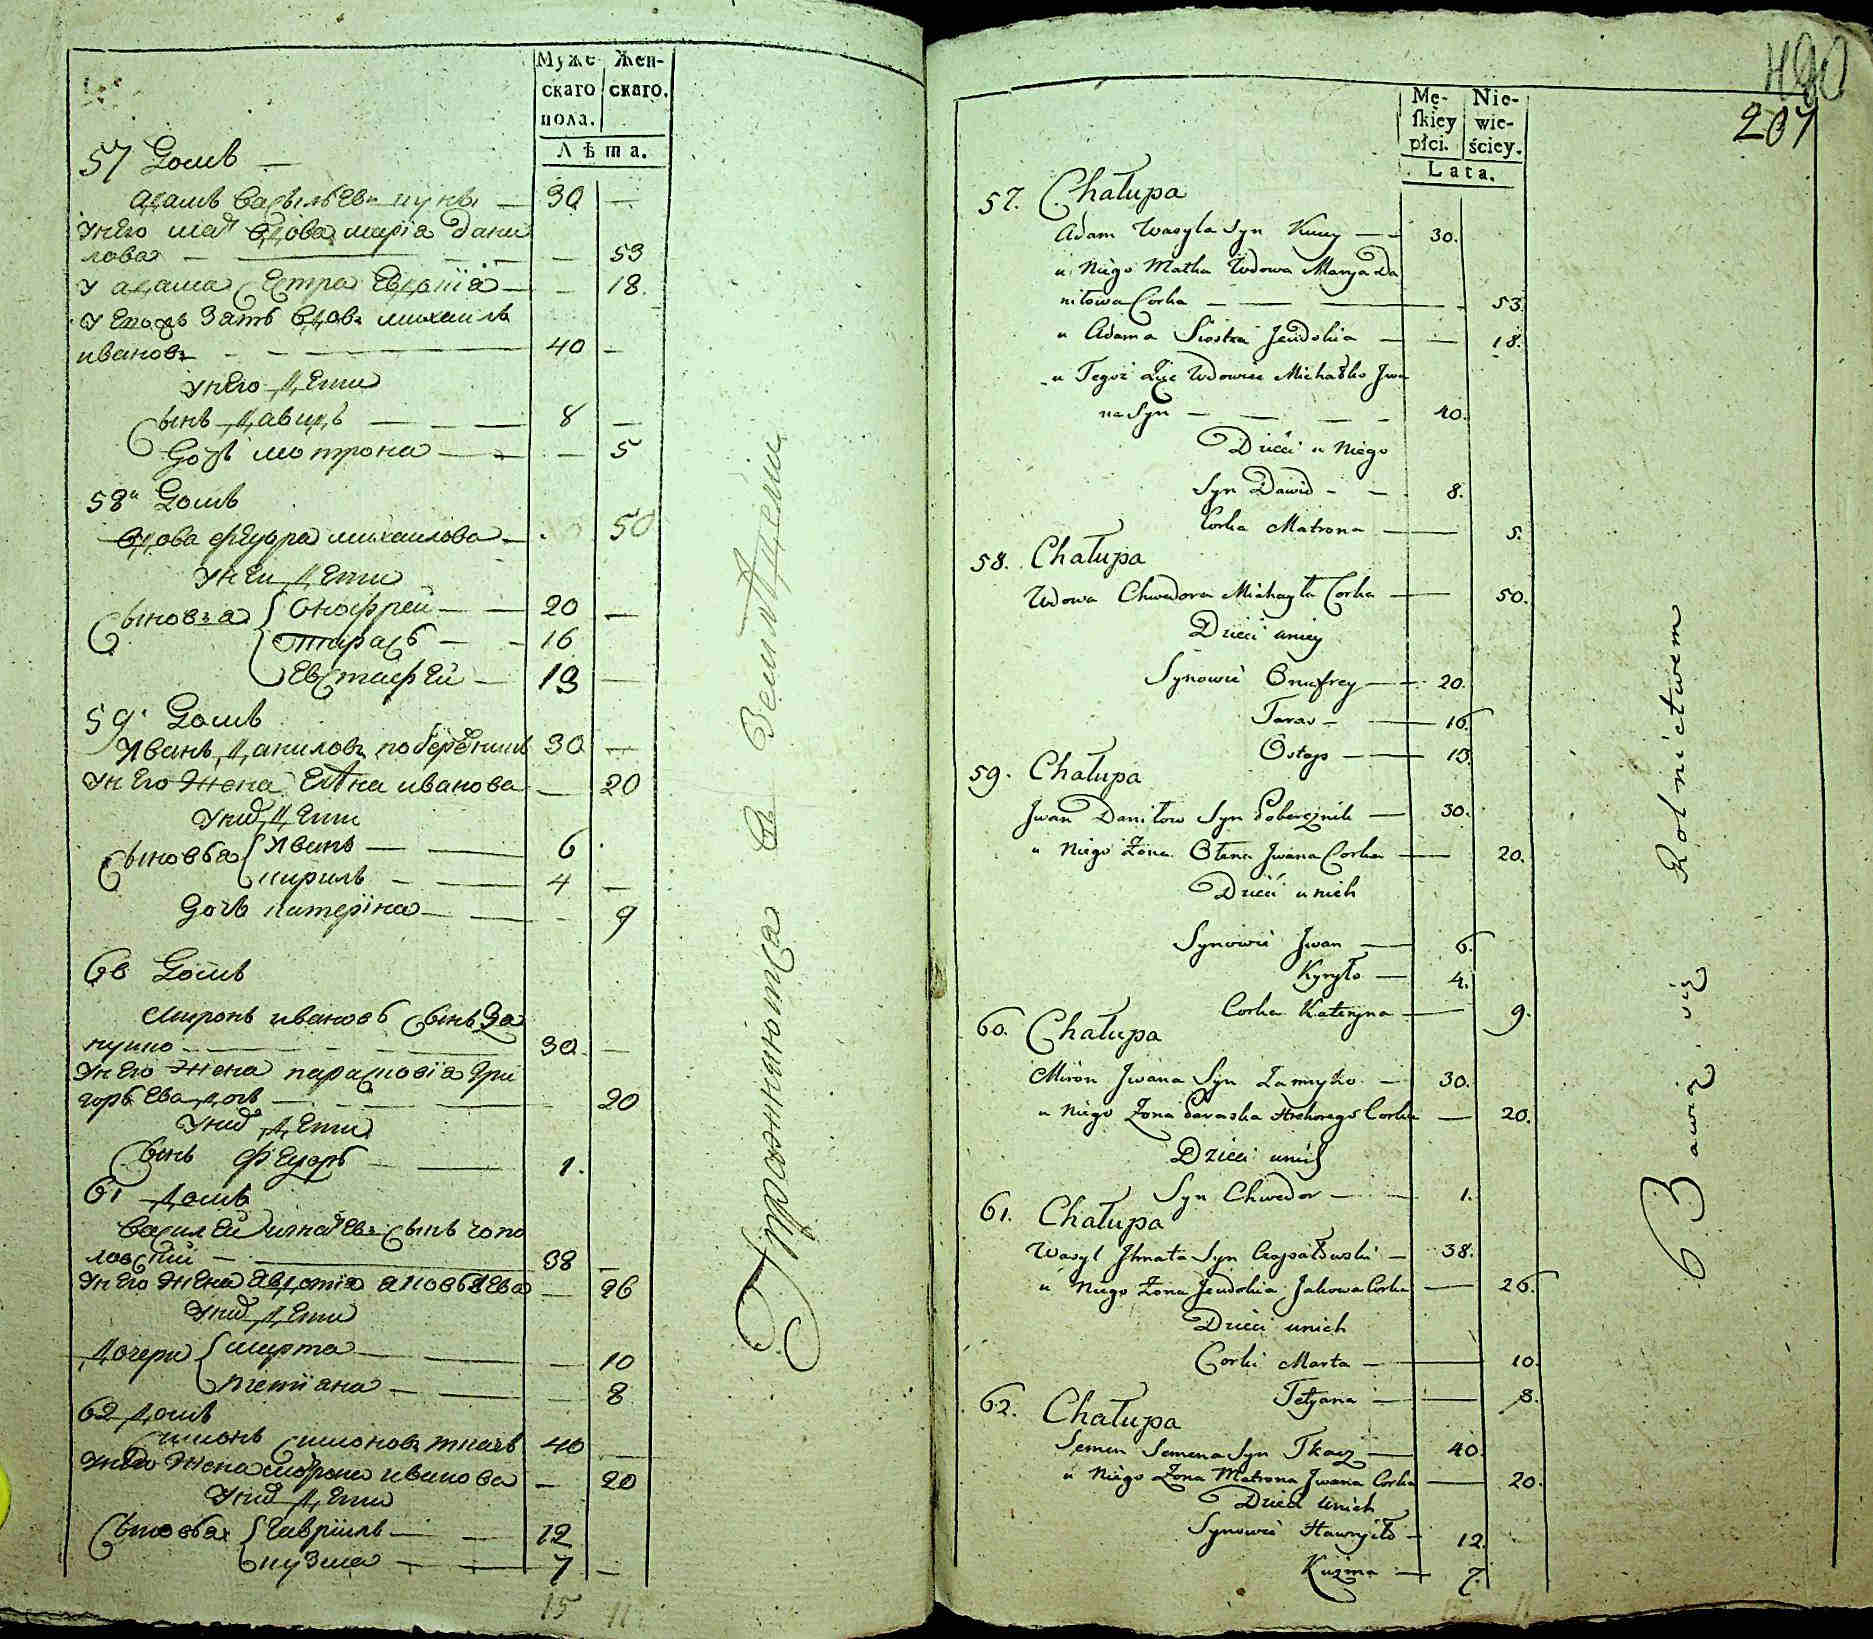 Муже-
скаго
пола.
Жен-
скаго.
Лѣта.
57 Домъ —
Адамъ Васыльевъ — 30 —
У него мат вдова мария Дани
лова — — 53
У адама сестра Евдокія — — 18.
У ... Зять вдовъ михаилъ
ивановъ — 40 —
У него Дети
Сынъ Давидъ — 8 —
Дочь мотрона — — 5
58й Домъ
Вдова федора михаилова — 50
У неи Дети
Сыновья Онофреи — 20 —
Тарасъ — 16
Евстафеи — 13 —
59. Домъ
Иванъ Даниловъ побережникъ 30 —
У него жена Елѣна иванова — 20
У них Дети
Сыновья Иванъ — 6
кирилъ — 4 —
Дочь катерина — 9
60 Домъ
Миронъ ивановъ сынъ За
мушко — 30 —
У него жена парасковія Гри
горьева дочь — 20
У них Дети
Сынъ Федоръ — 1.
61 Домъ
Василеи игнатевъ сынъ чопо
ловскии — 38 —
У него жена Явдотія яковлева — 26
У них Дети
Дочери марта — — 10
тетияна — — 8
62 Домъ
Симонъ Симоновъ ткачь 40 —
У него жена мотрона иванова — 20
У них Дети
Сыновья Гавріилъ — 12
кузма — 7 —
15 11
Упражняются в Земледелии
490
207
Mę-
skiey
płci.
Nie-
wie-
ściey.
Lata.
57. Chałupa
Adam Wasyla Syn — 30.
u Niego Matka Wdowa Marya Da
niłowa Corka — 53.
u Adama Siostra Jewdokia — — 18.
u Tegoż Zięć Wdowiec Michałko Jwa
na Syn — 40.
Dzieci u Niego
Syn Dawid - - 8.
Corka Matrona — 5.
58. Chałupa
Wdowa Chwedora Michayła Corka — 50.
Dzieci u niey
Synowie Onufrey — 20.
Taras — 16
Ostap — 13.
59. Chałupa
Jwan Daniłow Syn Pobereznik — 30.
u Niego Żona Ołena Jwana Corka — 20.
Dzieci u nich
Synowie Jwan — 6.
Kyryło — 4.
Corka Kateryna — 9.
60. Chałupa
Miron Jwana Syn Zamuyko — 30.
u Niego Żona Paraska Hrehorego Corka — 20.
Dzieci u nich
Syn Chwedor — 1.
61. Chałupa
Wasyl Jhnata Syn Czopałowski — 38.
u Niego Żona Jewdokia Jakowa Corka — 26.
Dzieci u nich
Corki Marta — 10.
Tetyana — 8.
62. Chałupa
Semen Semena Syn Tkacz — 40.
u Niego Żona Matrona Jwana Corka — 20.
Dzieci u nich
Synowie Hawryło — 12.
Kuzma — 7.
Bawią się Rolnictwem